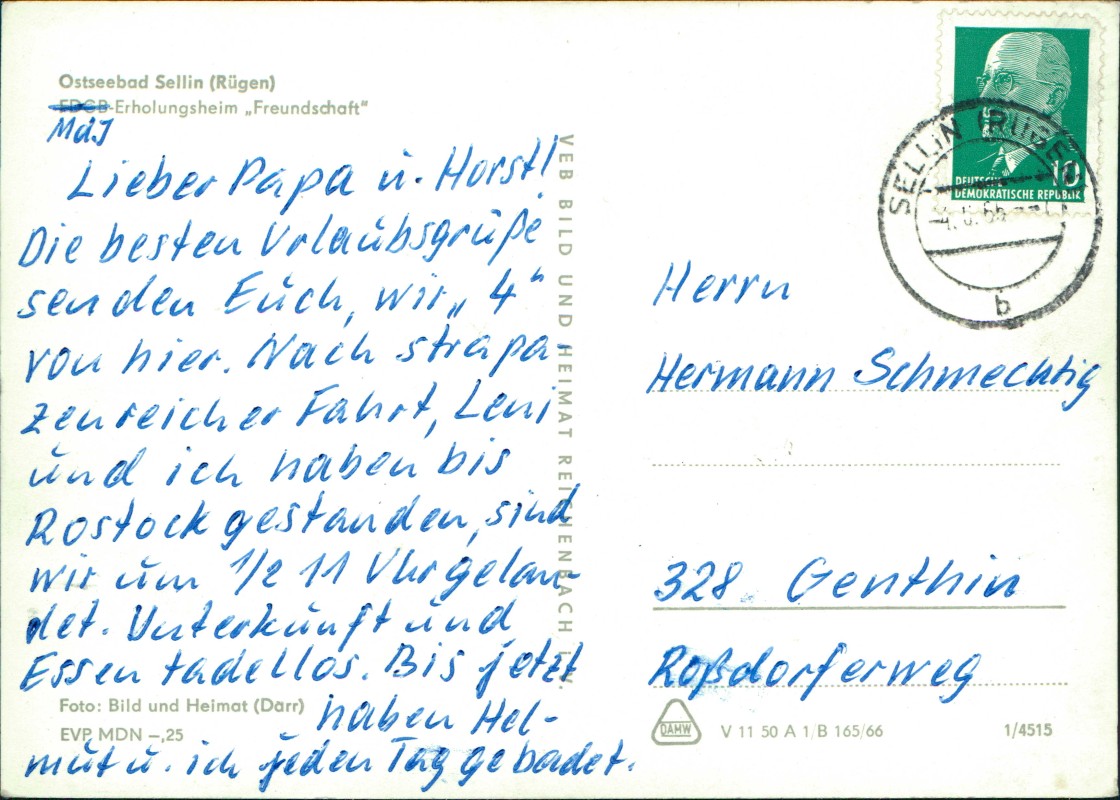 Ostseebad Sellin (Rügen)
FDGB-Erholungsheim „Freundschaft"
MdJ
Lieber Papa u. Horst!
Die besten Urlaubsgrüße
senden Euch, wir „4"
von hier. Nach strapa-
zenreicher Fahrt, Leni
und ich haben bis
Rostock gestanden, sind
wir um 1/2 11 Uhr gelan-
det. Unterkunft und
Essen tadellos. Bis jetzt
haben Hel-
mut u. ich jeden Tag gebadet.
Foto: Bild und Heimat (Darr)
EVP MDN –,25
VEB BILD UND HEIMAT REICHENBACH I. V.
DEUTSCHE
DEMOKRATISCHE REPUBLIK
10
SELLIN (RÜGEN)
b
Herrn
Hermann Schmechtig
328. Genthin
Roßdorferweg
DAMW
V 11 50 A 1/B 165/66
1/4515